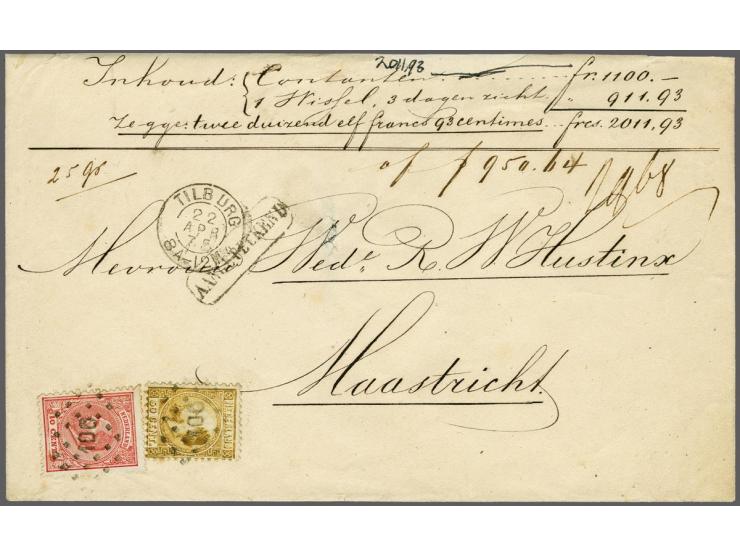 2011,93
Inhoud: { Contanten fr. 1100.—
1 Wissel, 3 dagen zicht, „ 911.93
Zegge: twee duizend elf francs 93 centimes frcs. 2011,93
of f 950.64
TILBURG
22
APR
AANGETEKEND
Mevrouw Wede R. W. Hustinx
Maastricht.
10 CENT
NEDERLAND
106
106